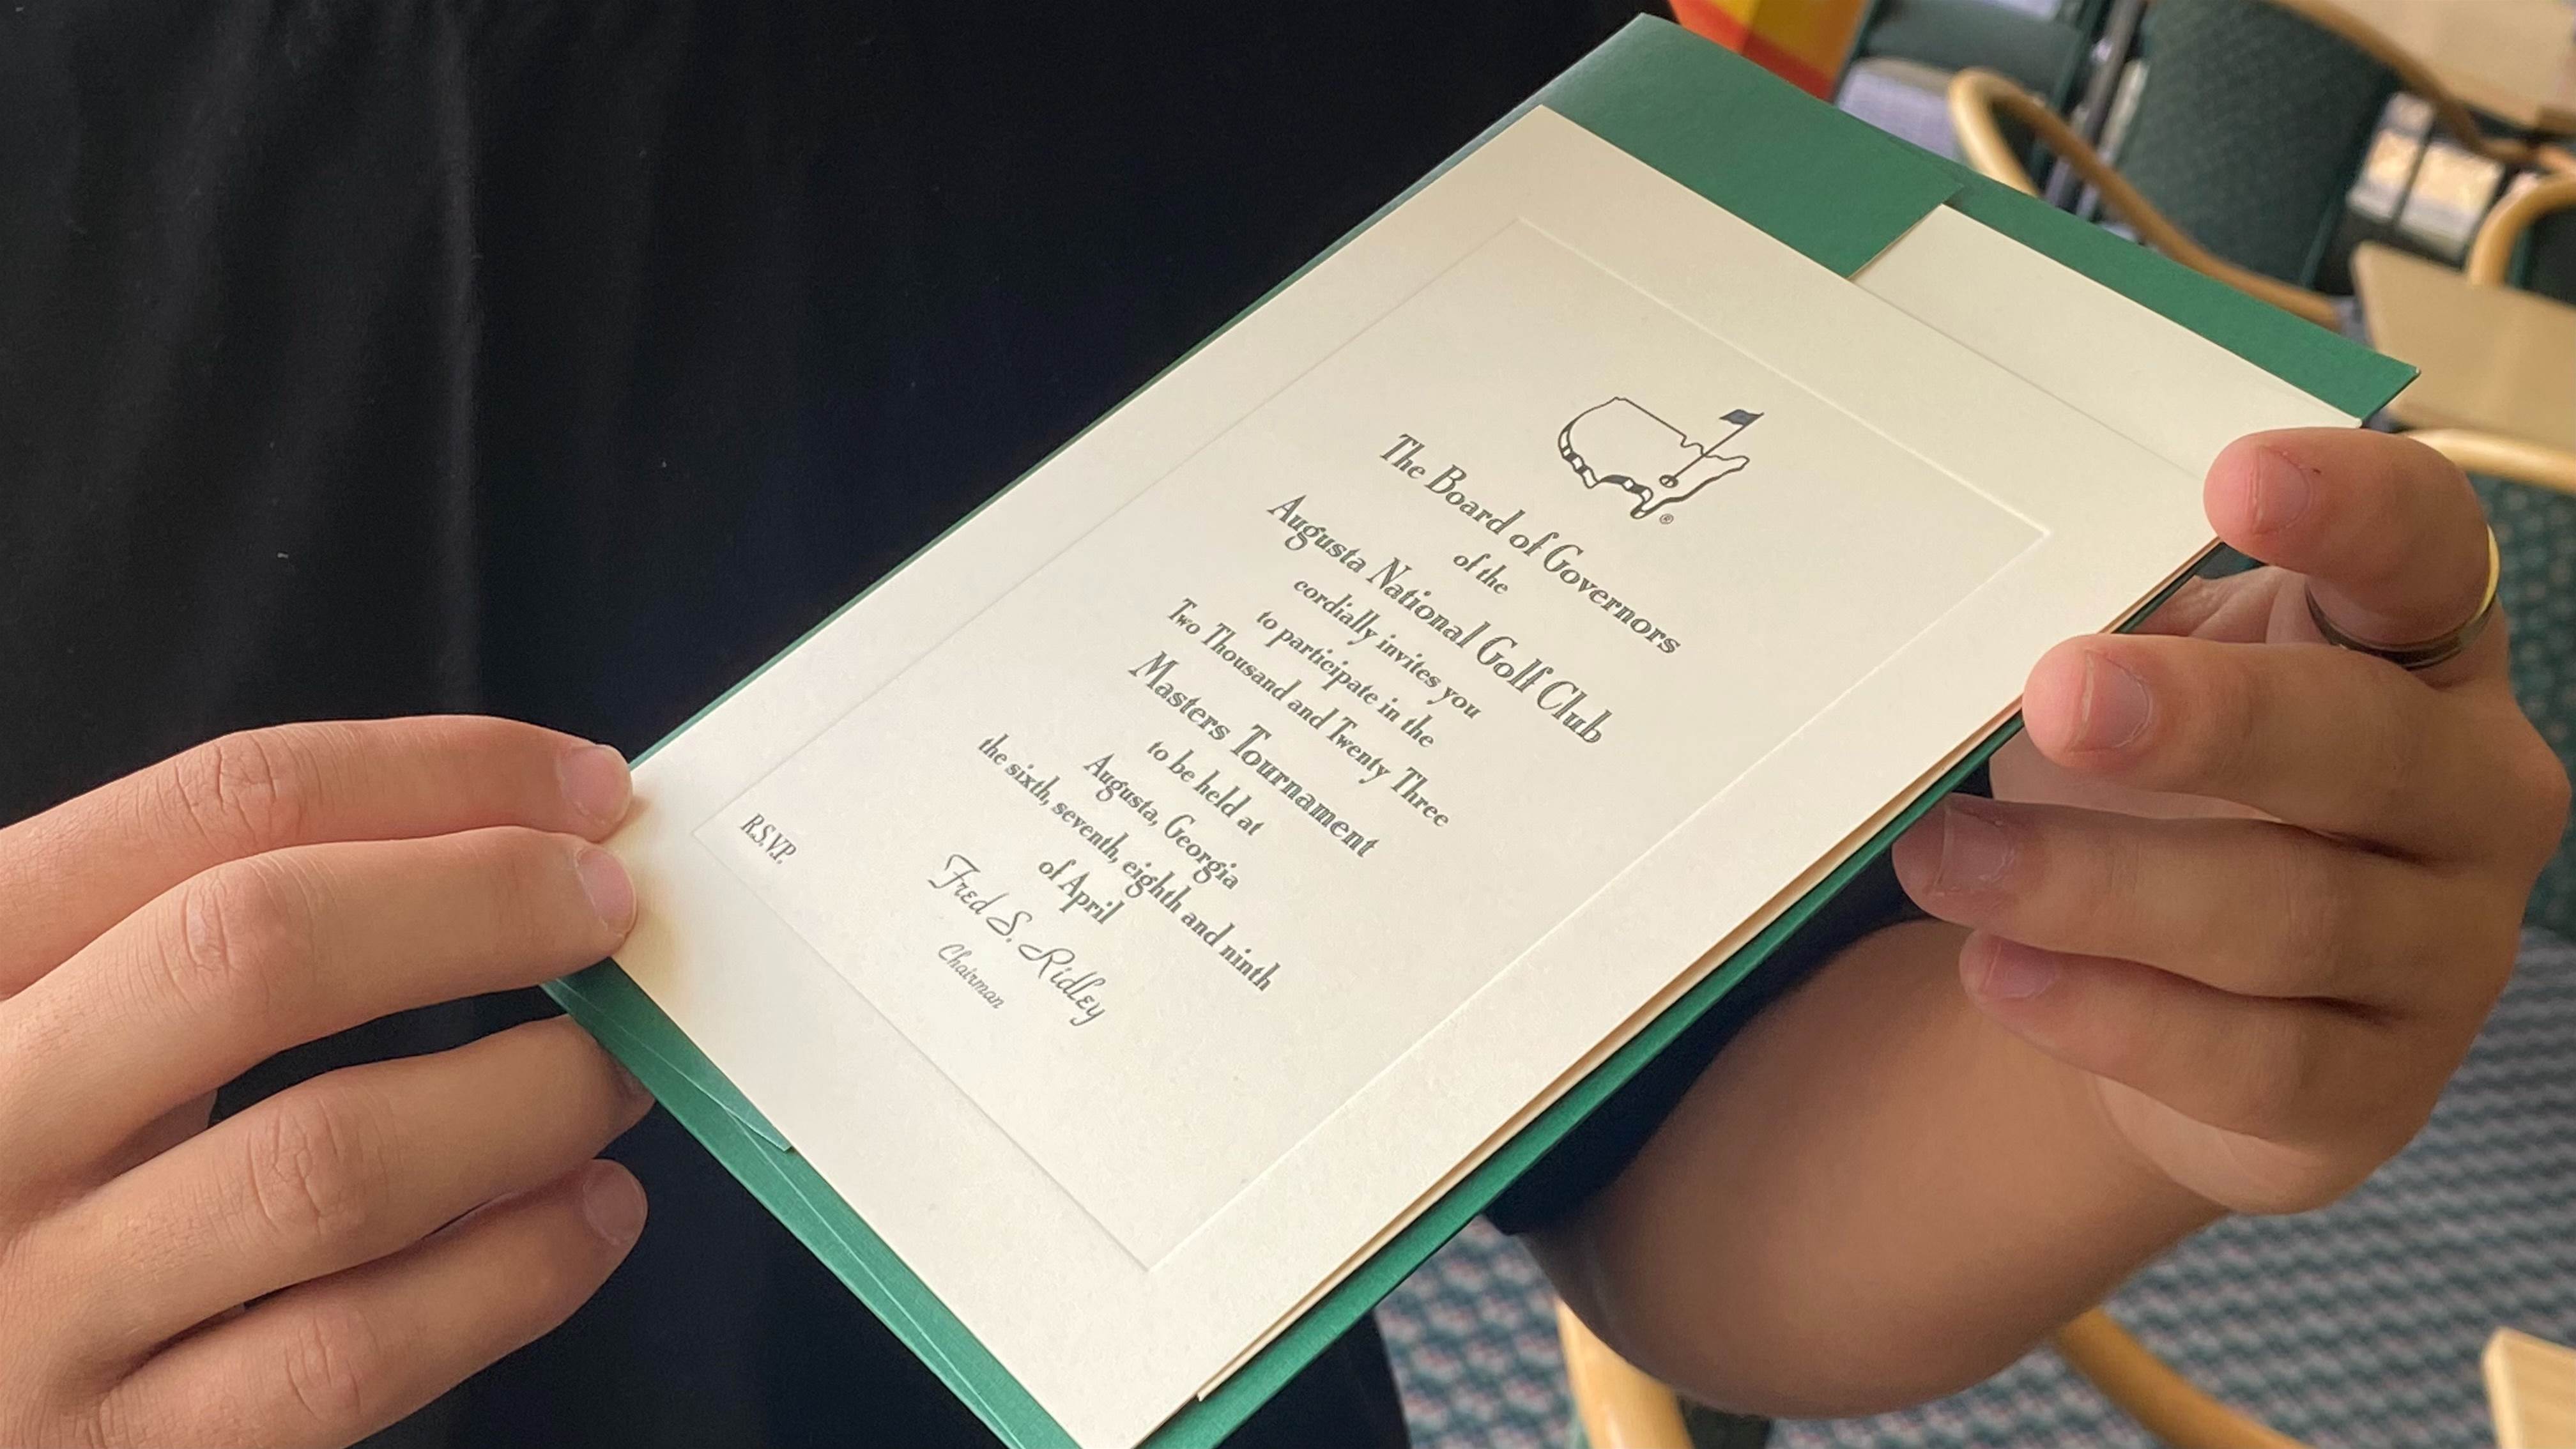 The Board of Governors
of the
Augusta National Golf Club
cordially invites you
to participate in the
Two Thousand and Twenty Three
Masters Tournament
to be held at
Augusta, Georgia
the sixth, seventh, eighth and ninth
of April
Fred S. Ridley
Chairman
R.S.V.P.